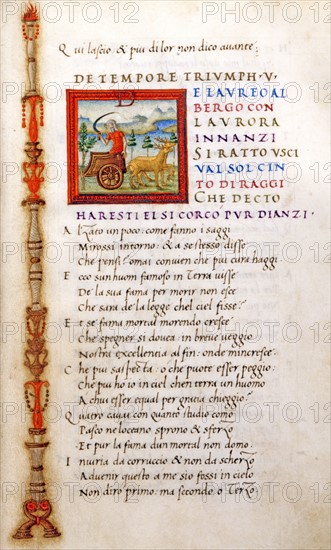 Qui lascio & piu di lor non dico avante:
DE TEMPORE TRIUMPH·V·
D
E L'AUREO AL
BERGO CON
L'AURORA
INNANZI
SI RATTO USCI
VAL SOL CIN
TO DI RAGGI
CHE DECTO
HARESTI EL SI CORCO PUR DIANZI·
Alzato un poco: come fanno i saggi
Mirossi intorno: & a se stesso disse
Che pensi? omai convien che piu cura haggi
Ecco s'un huom famoso in Terra visse
De la sua fama per morir non esce
Che sara de la legge ch'el ciel fisse?
Et se fama mortal morendo cresce
Che spegner si dovea in breve veggio
Nostra Excellenza al fin: onde m'increscе
Che piu s'aspecta o che puote esser peggio
Che piu ho io in ciel ch'en terra un huomo
A chui esser equal per gratia chieggio?
Quatro cavai con quanto studio como
Pasco ne l'oceano sprono & sferzo
Et pur la fama d'un mortal non domo
Iniuria da corruccio & non da scherzo
Advenir questo a me s'io fossi in cielo
Non diro primo: ma secondo o Terzo
PHOTO12